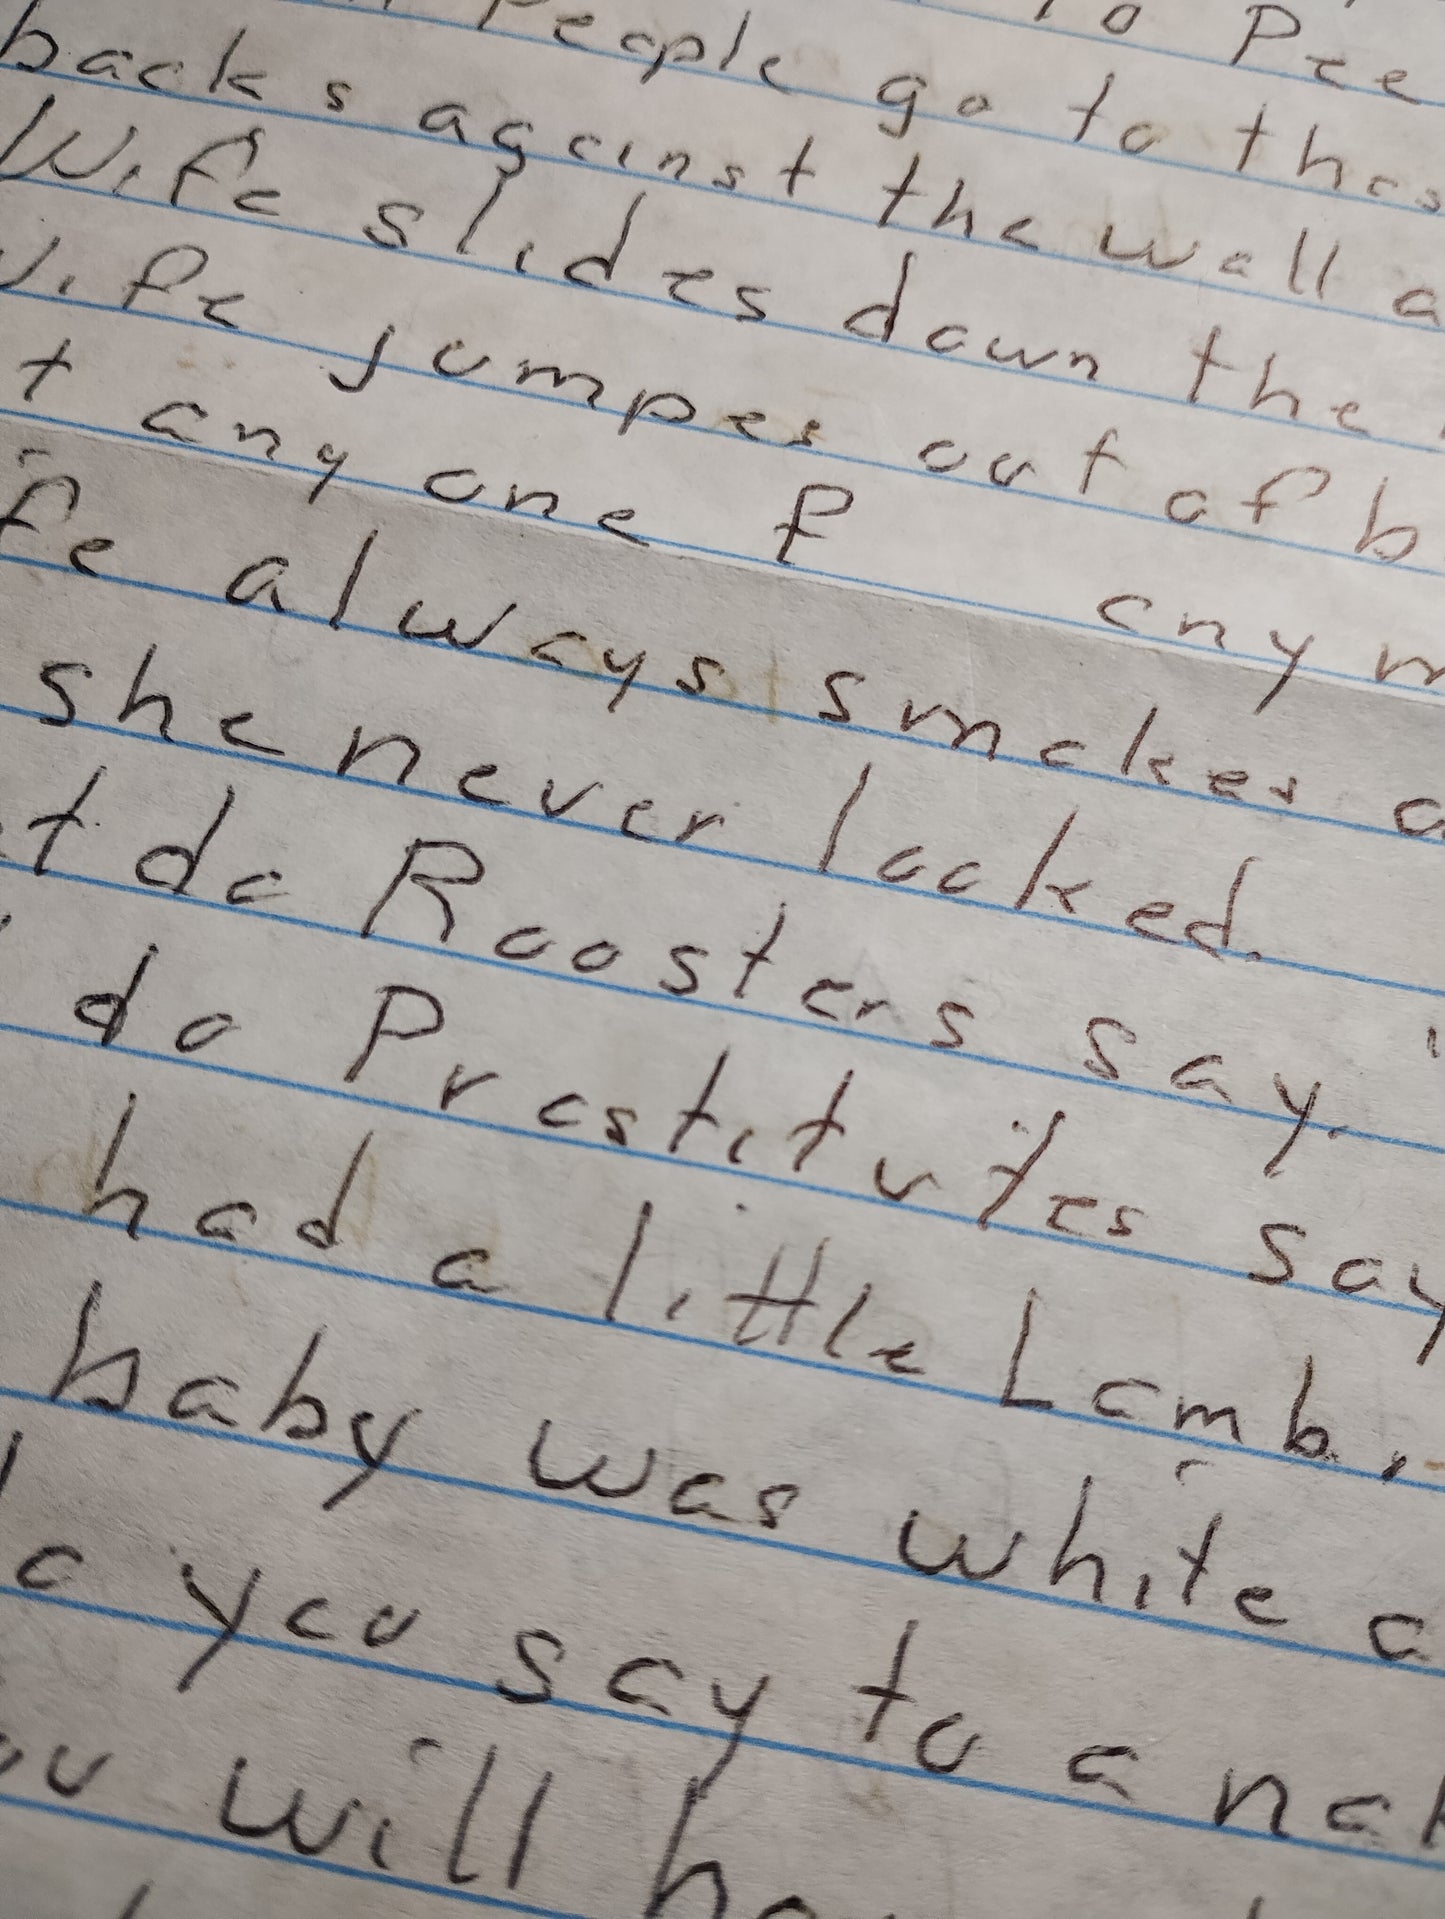 to Pee
People go to thos
backs against the wall a
Wife slides down the
wife jumpes out of b
t any one F any m
fe always smokes a
she never looked.
t do Roosters say.
do Prostitutes say
had a little Lamb,
baby was white a
o you say to a nak
ou will ha